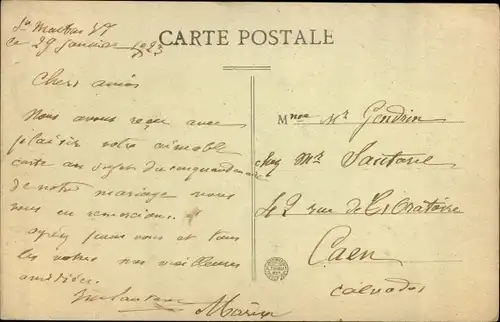 ce 29 Janvier 1923
CARTE POSTALE
Chers amis
Nous avons reçu avec
plaisir votre aimable
carte au sujet du cinquantenaire
de notre mariage nous
vous en remercions.
ayez pour vous et tous
les votres nos meilleures
amitiées.
Marie
Mme Mr Gendrin
chez Mr
2 rue de l'Oratoire
Caen
Calvados